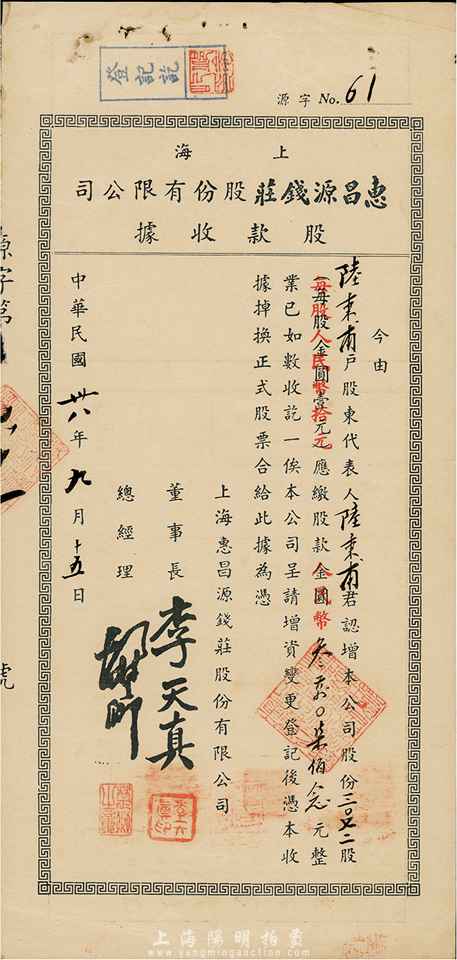 登記訖
源字 No. 61
上海
惠昌源錢莊股份有限公司
股款收據
今由
陸東甫戶股東代表人陸東甫君認增本公司股份三〇七二股
每股金圓壹拾元應繳股款金圓叁萬〇柒佰念元整
每股人民幣拾元
人民幣
業已如數收訖一俟本公司呈請增資變更登記後憑本收
據掉換正式股票合給此據為憑
上海惠昌源錢莊股份有限公司
董事長 李天真
總經理
中華民國卅八年九月十五日
源字第
號
上海陽明拍賣
www.yangmingauction.com